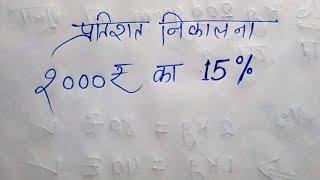 प्रतिशत निकालना
२०००₹ का 15%